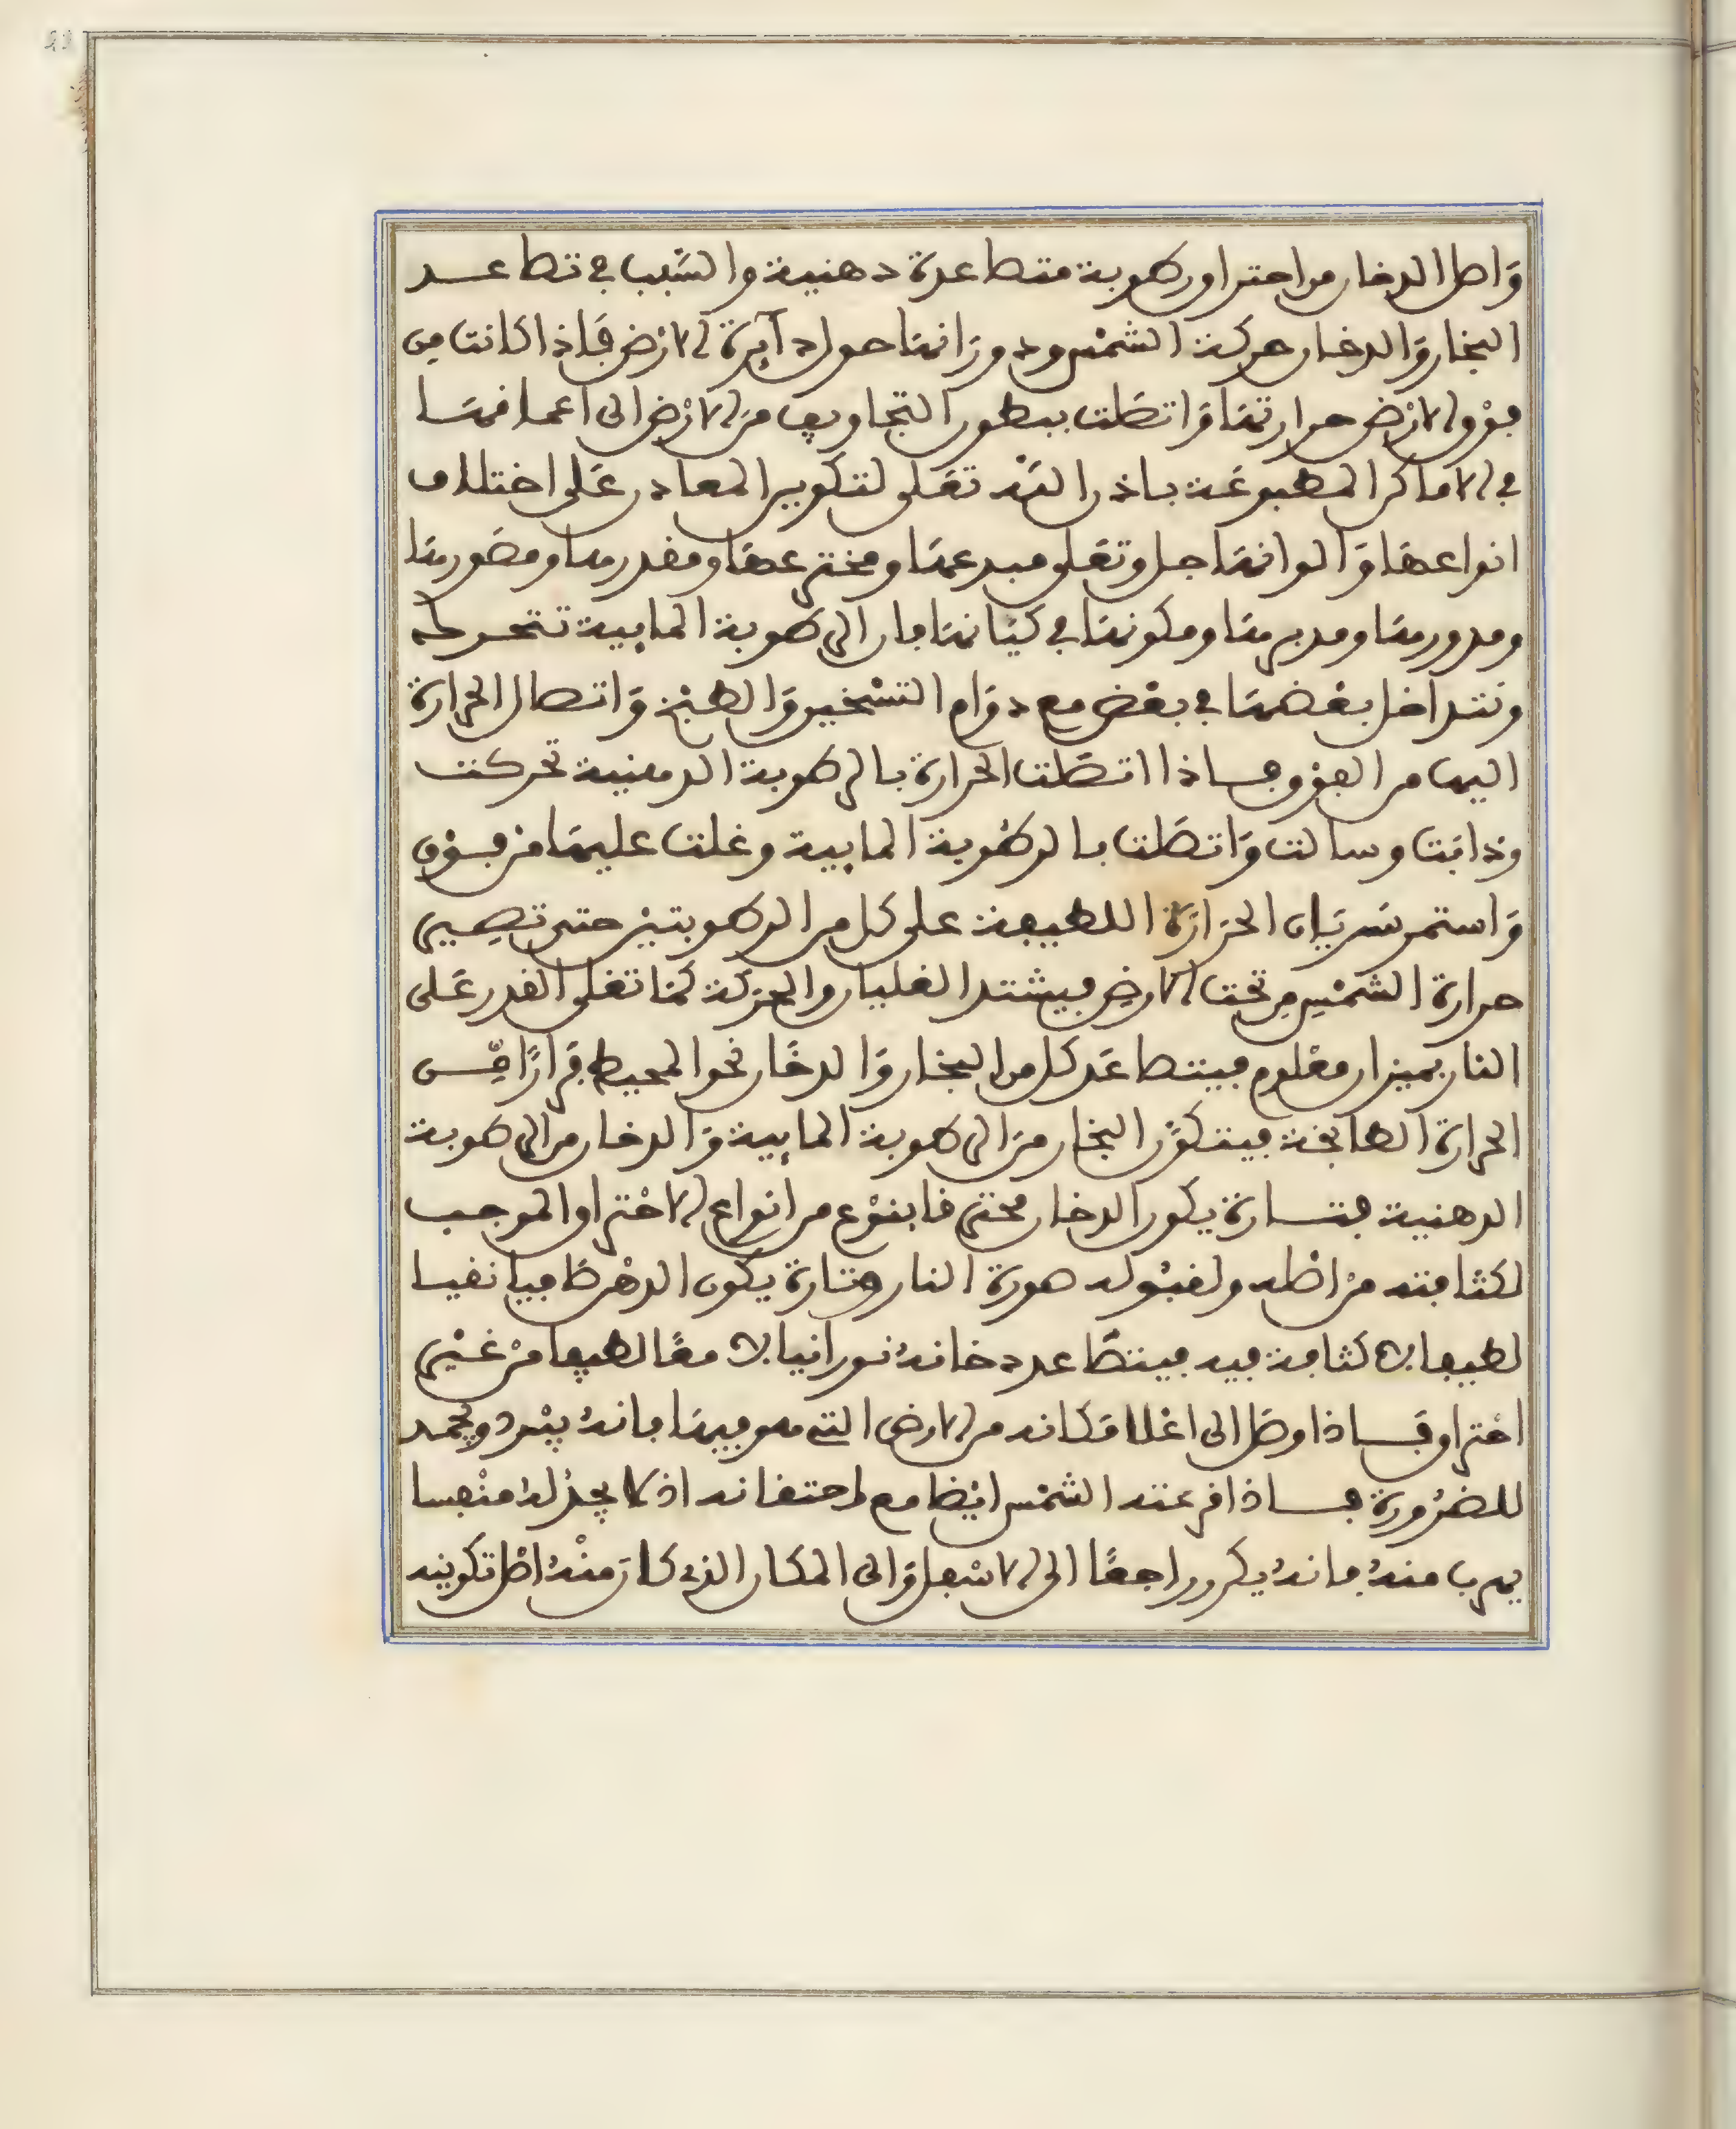 وَاصل الدخان من احتراق رطوبة متصاعدة دهنية والسَّبب في تصاعـــد
البخار وَالدخان حركة الشمْس ودورَانهَا حول دآيرة الارْض فَاذا كانت من
فوْق الارْض حرارتهَا وَاتصَلت ببطون التجاويف منَ الارْض الى اعماقهَا
في الاماكن المطبوعَة باذن اللَّه تعَلى لتكوين المعادن عَلى اختلاف
انواعهَا وَالوانهَا جل وتعَلى مبدعهَا ومخترعهَا ومقدرها ومصَورهَا
ومدورهَا ومدبرهَا ومكونهَا في كيَانهَا فان الرطوبة المايية تتحرك
وتتداخل بعْضهَا في بعْض مع دوَام التسْخين وَالطبْخ وَاتصال الحرارة
اليها من الفوْق فـــاذا اتصَلت الحرارة بالرطوبة الدهنية تحركت
وذابَت وسالت وَاتصَلت بالرطُوبة المايية وغلت عليهَا منْ فـوْق
وَاستمر سَريَان الحرَارَة اللطيفة على كل من الرطوبتيْن حتى تصِير
حرارة الشمْسِ مِن تحت الارضِ فيشتد الغليان والحرَكة كمَا تغلى القدر عَلى
النار بميزان معْلوم فيتصاعَد كل من البخار وَالدخَان نحو المحيط فرَارًا مِّـــن
الحرارة الطابخة فيتكوَّن البخار منَ الرطوبة المايية وَالدخان من الرطوبة
الدهنية فتـــارة يكون الدخان محترقا بنوْع من انواع الاحْتراق الموجب
لكثافته منْ اصْله ولقبُوله صورة النار وتَارة يكون الدهْن صَافيا نقيـا
لطيفا لا كثافة فيه فيتصَاعد دخانهُ نـورانيا لا معًا لطيفا منْ غيْر
احْتراق فَـــاذا وصَل الى اعْلا مَكانه من الارض التي هو فيهَا فانهُ يبْرد ويجْمد
للضرُورة فـــاذا قرعته الشمْس ايْضا مع احتقانه اذ لا يجدُ لهُ منْفسا
يهرب منهُ فانهُ يكر راجعًا الى الاسْفل وَالى المكان الذى كانَ منْهُ اصْل تكوينه